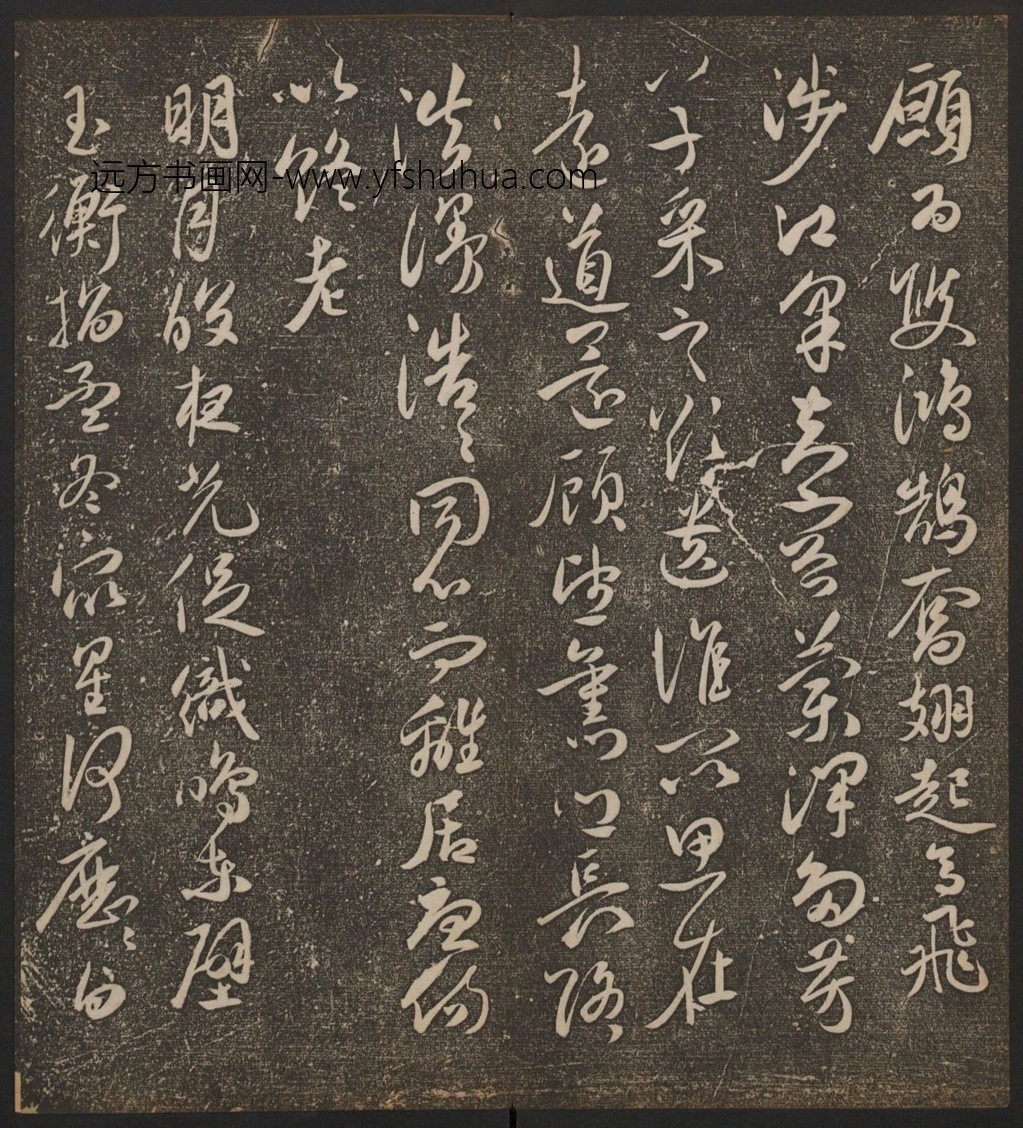 願為雙鴻鵠奮翅起高飛
涉江采芙蓉蘭澤多芳
草采之欲遺誰所思在
遠道還顧望舊鄉長路
浩漫浩〻同心而離居憂傷
以終老
明月皎夜光促織鳴東壁
玉衡指孟冬眾星何歷〻白
远方书画网-www.yfshuhua.com